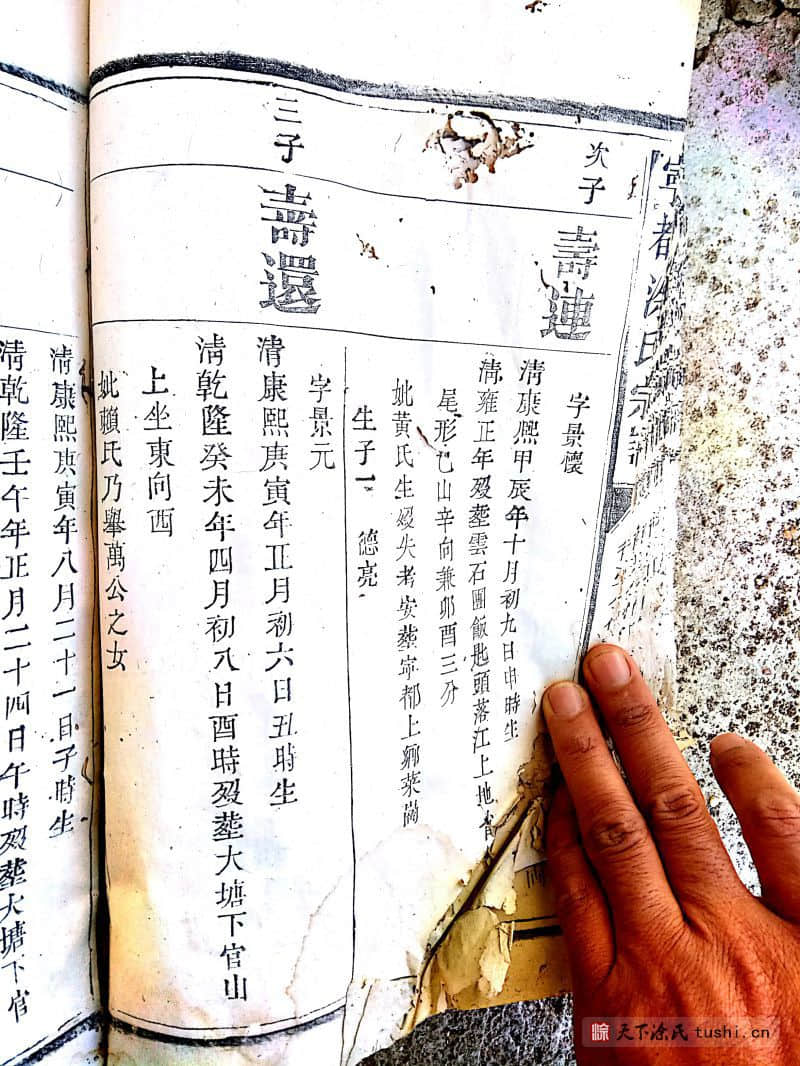 寧都涂氏宗譜
次子
壽連
字景懷
清康熙甲辰年十月初九日申時生
清雍正年歿塟雲石團飯匙頭落江上地
尾形乙山辛向兼卯酉三分
妣黃氏生歿失考安塟寧都上鄉萊崗
生子一 德亮
三子
壽還
字景元
清康熙庚寅年正月初六日丑時生
清乾隆癸未年四月初八日酉時歿塟大塘下官山
上坐東向西
妣賴氏乃舉萬公之女
清康熙庚寅年八月二十一日子時生
清乾隆壬午年正月二十四日午時歿塟大塘下官
天下涂氏 tushi.cn